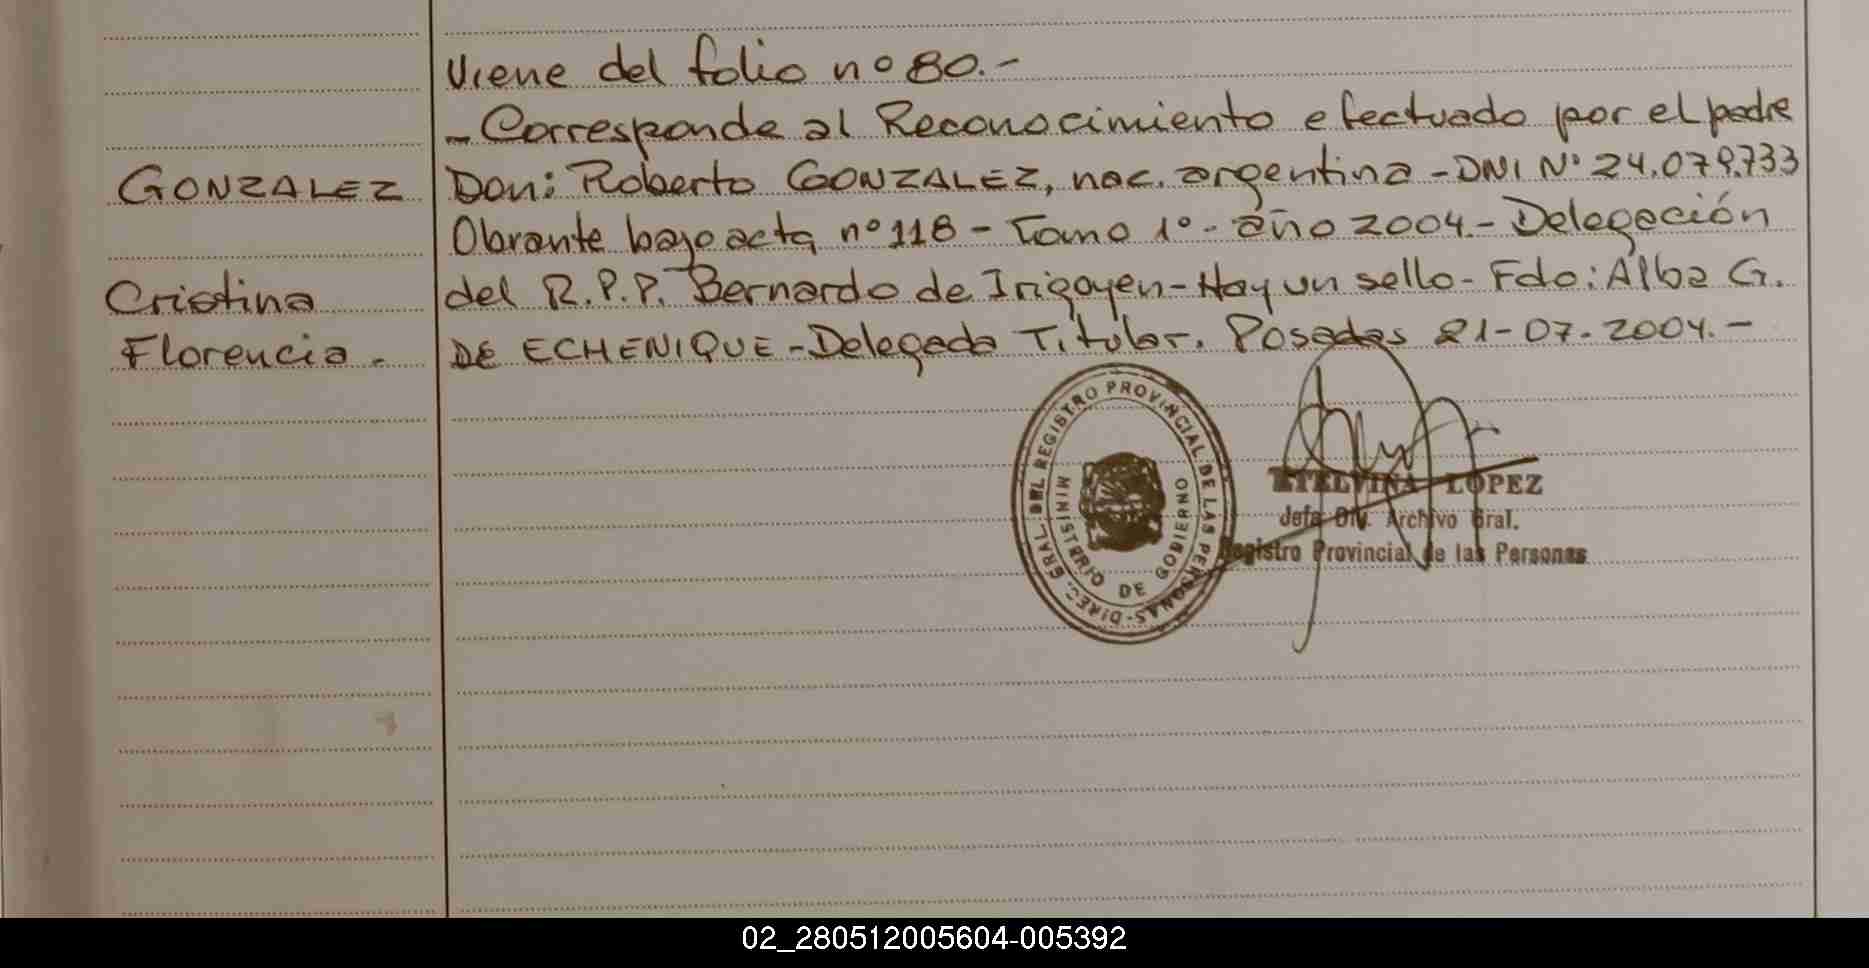 Viene del folio nº 80.-
- Corresponde al Reconocimiento efectuado por el padre
GONZALEZ Don: Roberto GONZALEZ, nac. argentina - DNI Nº 24.079.733
Obrante bajo acta nº 118 - Tomo 1º - año 2004.- Delegación
Cristina del R.P.P. Bernardo de Irigoyen - Hay un sello - Fdo: Alba G.
Florencia. DE ECHENIQUE - Delegada Titular. Posadas 21-07-2004.-
DIREC. GRAL. DEL REGISTRO PROVINCIAL DE LAS PERSONAS
MINISTERIO DE GOBIERNO
ETELVINA LOPEZ
Jefa Div. Archivo Gral.
Registro Provincial de las Personas
02_280512005604-005392